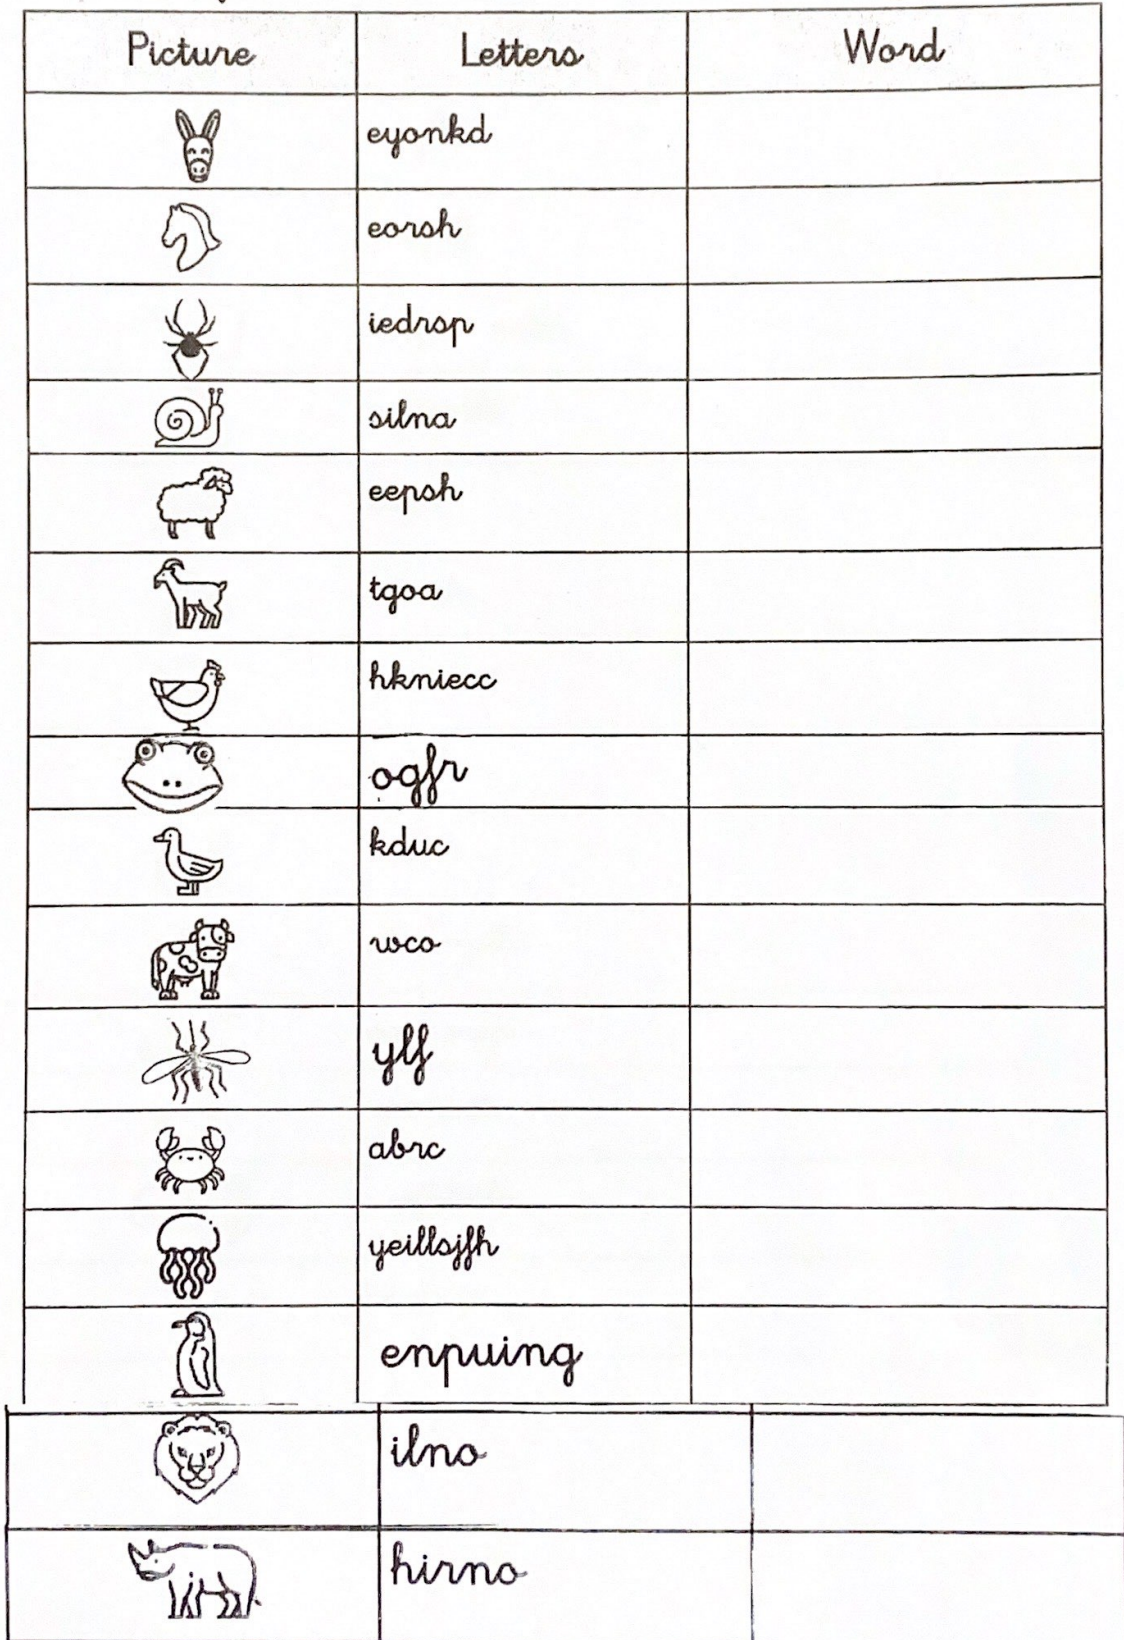 Picture Letters Word
eyonkd
eorsh
iedrsp
silna
eepsh
tgoa
hkniecc
ogfr
kduc
wco
ylf
abrc
yeillsjfh
enpuing
ilno
hirno